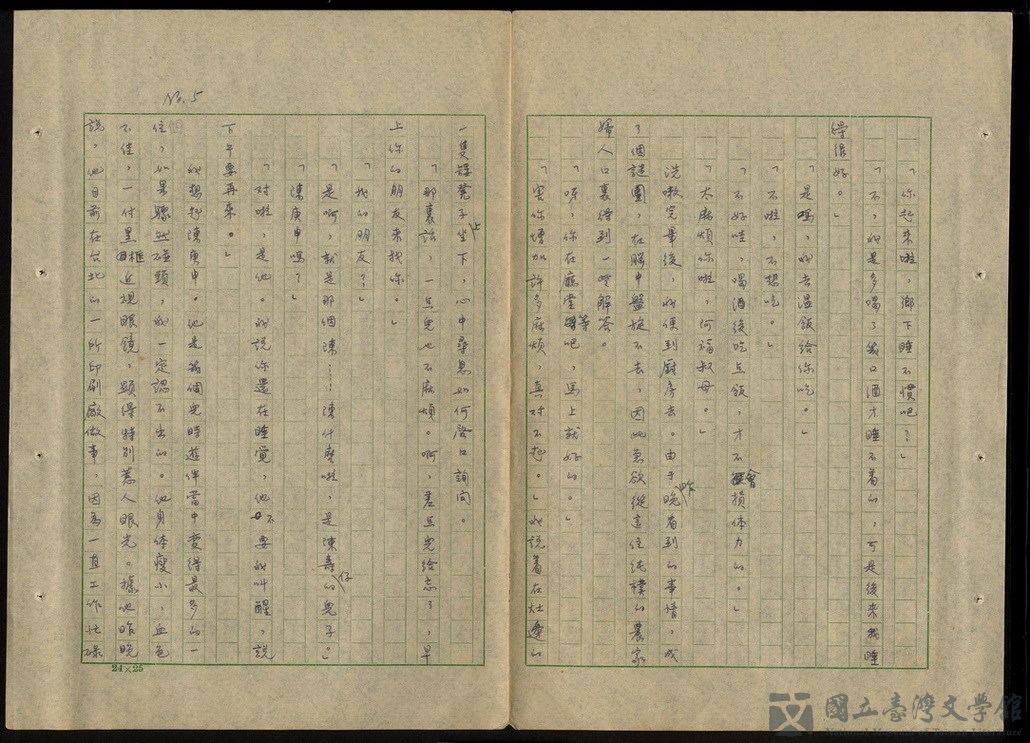 「你起來啦,鄉下睡不慣吧?」
「不,我是多喝了幾口酒才睡不着的,可是後來我睡
得很好。」
「是嗎,我去溫飯給你吃。」
「不啦,不想吃。」
「不好哇,喝酒後吃点飯,才不會損体力的。」
「太麻煩你啦,何福叔母。」
洗嗽完畢後,我便到厨房去。由于昨晚看到的事情,成
了個謎團,在腦中盤旋不去,因此急欲從這位純樸的農家
婦人口裏得到一些解答。
「呀,你在廳堂等吧,馬上就好的。」
「害你增加許多麻煩,真對不起。」我說着在灶邊的
一隻矮凳子坐上下,心中尋思如何啓口詢问。
「那裏話,一点兒也不麻煩。啊,差点兒給忘了,早
上你的朋友來找你。」
「我的朋友?」
「是啊,就是那個陳……陳什麼啦,是陳壽仔的兒子。」
「陳庚申嗎?」
「对啦,是他。我說你還在睡覺,他不要我叫醒,說
下午要再來。」
我想起陳庚申。他是兒時遊伴當中变得最多的一
個,如果驟然碰頭,我一定認不出的。他身体瘦小,血色
不佳,一付黑框近視眼鏡,顕得特別惹人眼光。據他昨晚
說,他目前在台北的一所印刷廠做事,因為一直工作忙碌
No. 5
24×25
國立臺灣文學館
National Museum of Taiwan Literature